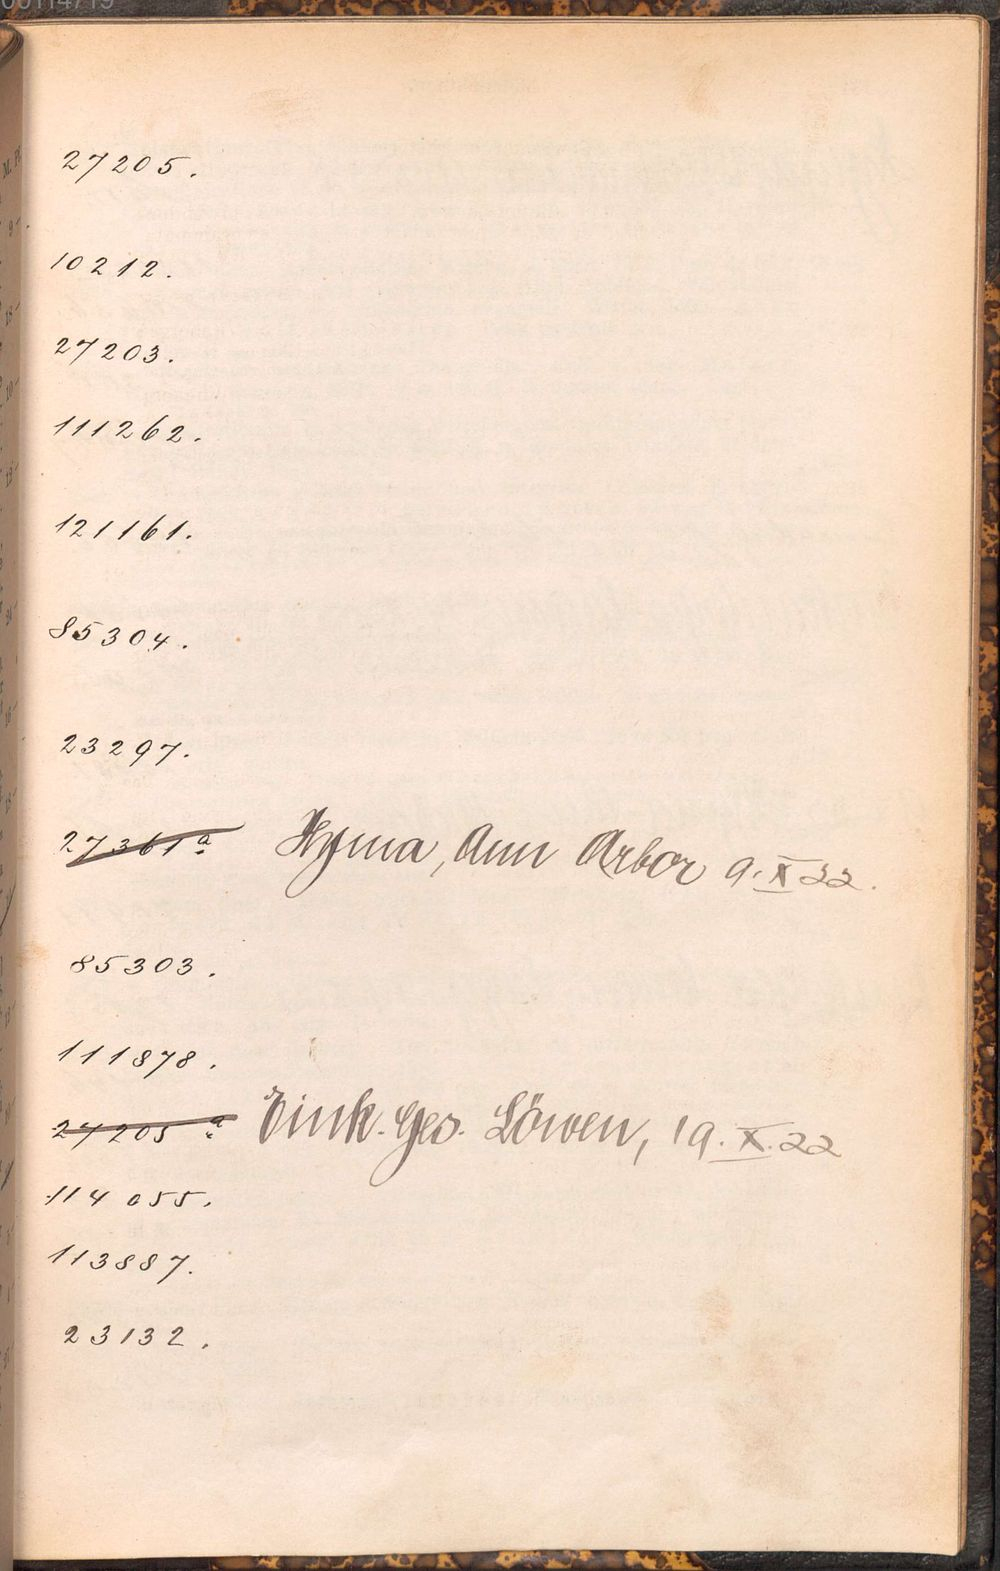 27205.
10212.
27203.
111262.
121161.
85304.
23297.
27361a Hyma, Ann Arbor 9.X 22.
85303.
111878.
27205a Eink. Ges. Löwen, 19.X.22
114055.
113887.
23132.